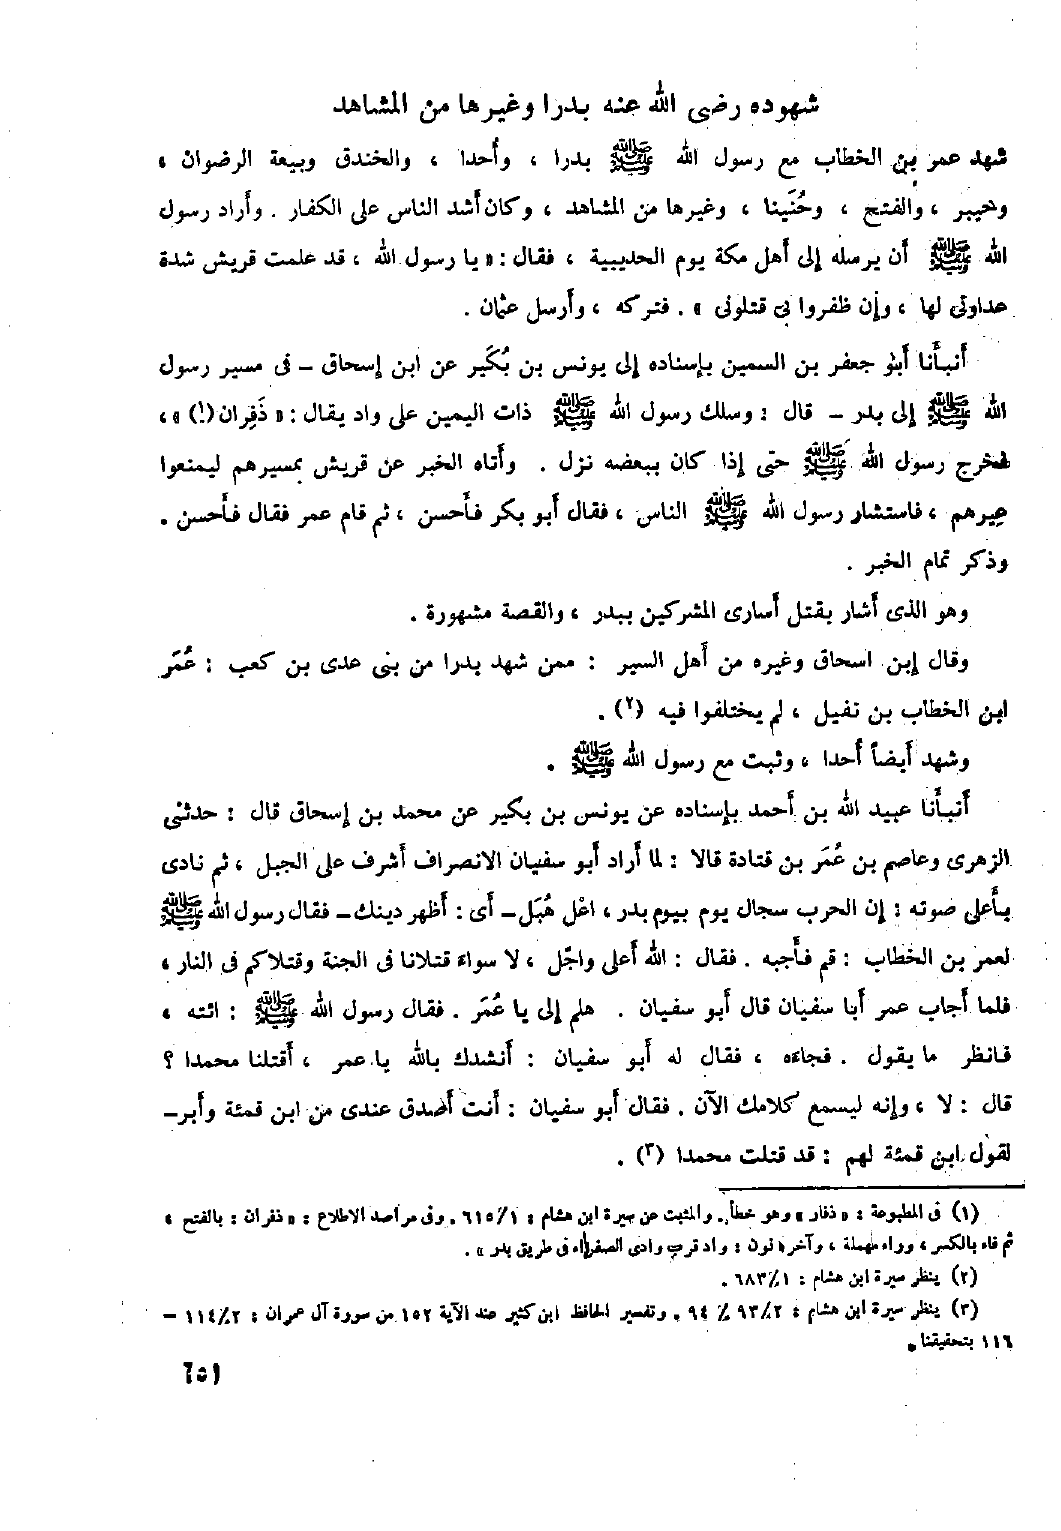 شهوده رضى الله عنه بدرا وغيرها من المشاهد
شهد عمر بن الخطاب مع رسول الله ﷺ بدرا ، وأُحدا ، والخندق وبيعة الرضوان ،
وخيبر ، والفتح ، وحُنَينا ، وغيرها من المشاهد ، وكان أشد الناس على الكفار . وأراد رسول
الله ﷺ أن يرسله إلى أهل مكة يوم الحديبية ، فقال : « يا رسول الله ، قد علمت قريش شدة
عداوتى لها ، وإن ظفروا بى قتلونى » . فتركه ، وأرسل عثمان .
أنبأنا أبو جعفر بن السمين بإسناده إلى يونس بن بُكَير عن ابن إسحاق – فى مسير رسول
الله ﷺ إلى بدر – قال : وسلك رسول الله ﷺ ذات اليمين على واد يقال : « ذَفِران (١) » ،
فخرج رسول الله ﷺ حتى إذا كان ببعضه نزل . وأتاه الخبر عن قريش بمسيرهم ليمنعوا
عِيرهم ، فاستشار رسول الله ﷺ الناس ، فقال أبو بكر فأحسن ، ثم قام عمر فقال فأحسن .
وذكر تمام الخبر .
وهو الذى أشار بقتل أسارى المشركين ببدر ، والقصة مشهورة .
وقال إبن اسحاق وغيره من أهل السير : ممن شهد بدرا من بنى عدى بن كعب : عُمَر
ابن الخطاب بن نفيل ، لم يختلفوا فيه (٢) .
وشهد أيضاً أُحدا ، وثبت مع رسول الله ﷺ .
أنبأنا عبيد الله بن أحمد بإسناده عن يونس بن بكير عن محمد بن إسحاق قال : حدثنى
الزهرى وعاصم بن عُمَر بن قتادة قالا : لما أراد أبو سفيان الانصراف أشرف على الجبل ، ثم نادى
بأعلى صوته : إن الحرب سجال يوم بيوم بدر ، اعْل هُبَل – أى : أظهر دينك – فقال رسول الله ﷺ
لعمر بن الخطاب : قم فأجبه . فقال : الله أعلى وأجّل ، لا سواء قتلانا فى الجنة وقتلاكم فى النار ،
فلما أجاب عمر أبا سفيان قال أبو سفيان . هلم إلى يا عُمَر . فقال رسول الله ﷺ : ائته ،
فانظر ما يقول . فجاءه ، فقال له أبو سفيان : أنشدك بالله يا عمر ، أقتلنا محمدا ؟
قال : لا ، وإنه ليسمع كلامك الآن . فقال أبو سفيان : أنت أصدق عندى من ابن قمئة وأبر –
لقول ابن قمئة لهم : قد قتلت محمدا (٣) .
(١) فى المطبوعة : « ذفار » وهو خطأ . والمثبت عن سيرة ابن هشام : ٦١٥/١ . وفى مراصد الاطلاع : « ذفران : بالفتح ،
ثم فاء بالكسر ، وراء مهملة ، وآخره نون : واد قرب وادى الصفراء فى طريق بدر » .
(٢) ينظر سيرة ابن هشام : ٦٨٣/١ .
(٣) ينظر سيرة ابن هشام : ٩٣/٢ / ٩٤ . وتفسير الحافظ ابن كثير عند الآية ١٥٢ من سورة آل عمران : ١١٤/٢ –
١١٦ بتحقيقنا .
٦٥١